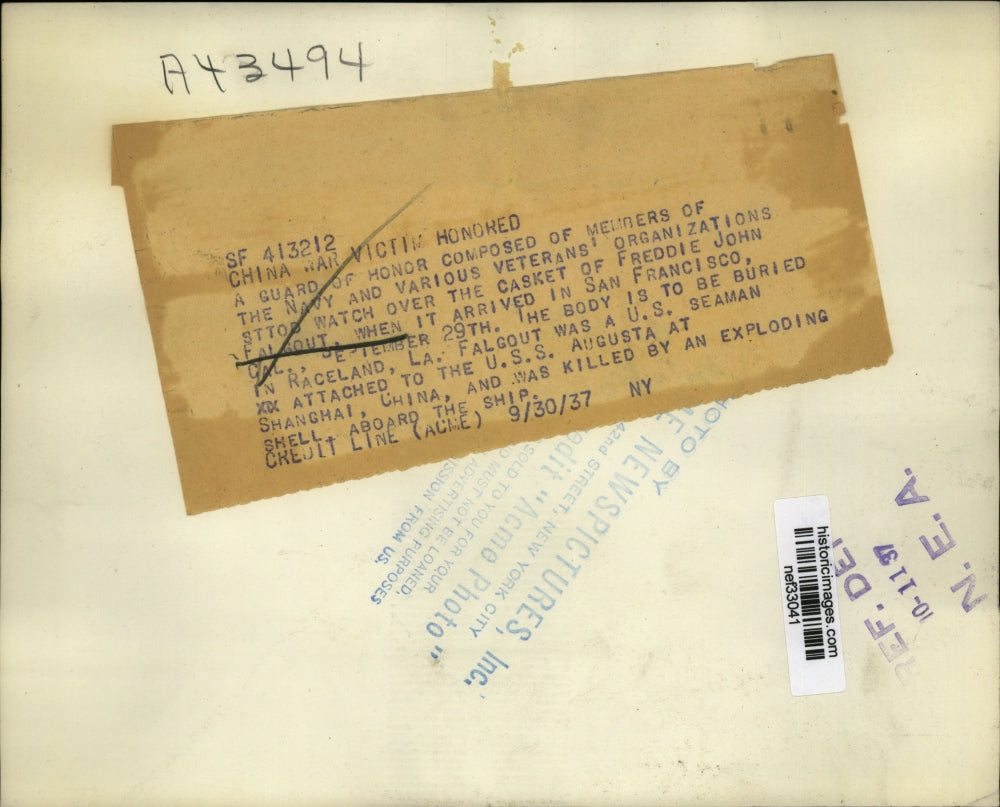 A43494
SF 413212
CHINA WAR VICTIM HONORED
A GUARD OF HONOR COMPOSED OF MEMBERS OF
THE NAVY AND VARIOUS VETERANS' ORGANIZATIONS
STTOD WATCH OVER THE CASKET OF FREDDIE JOHN
FALGOUT, WHEN IT ARRIVED IN SAN FRANCISCO,
CAL., SEPTEMBER 29TH. THE BODY IS TO BE BURIED
IN RACELAND, LA. FALGOUT WAS A U.S. SEAMAN
XX ATTACHED TO THE U.S.S. AUGUSTA AT
SHANGHAI, CHINA, AND WAS KILLED BY AN EXPLODING
SHELL, ABOARD THE SHIP.
CREDIT LINE (ACME) 9/30/37 NY
PHOTO BY
NEWSPICTURES, Inc.
42nd STREET, NEW YORK CITY
"Acme Photo"
SOLD TO YOU FOR YOUR
MUST NOT BE LOANED,
ADVERTISING PURPOSES
FROM US.
historicimages.com
nef33041
REF. DE
10-1137
N. E. A.